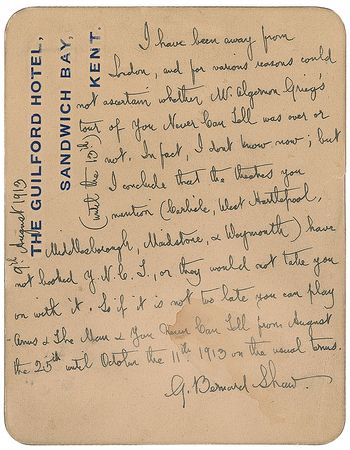 THE GUILFORD HOTEL,
SANDWICH BAY,
KENT.
9th August 1913
I have been away from
London, and for various reasons could
not ascertain whether Mr Algernon Greig's
tour of You Never Can Tell was over or
(until the 13th)
not. In fact, I dont know now; but
I conclude that the theatres you
mention (Carlisle, West Hartlepool,
Middlesborough, Maidstone, & Weymouth) have
not booked Y.N.C.T., or they would not take you
on with it. So if it is not too late you can play
Arms & The Man & You Never Can Tell from August
the 25th until October the 11th 1913 on the usual terms.
G. Bernard Shaw.